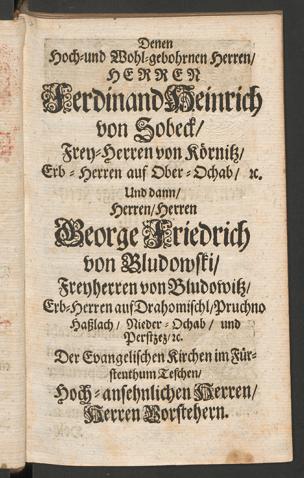 Denen
Hoch-und Wohl-gebohrnen Herren/
HERREN
Ferdinand Heinrich
von Sobeck/
Frey-Herren von Körnitz/
Erb-Herren auf Ober-Ochab/ ꝛc.
Und dann/
Herren/Herren
George Friedrich
von Bludowski/
Freyherren von Bludowitz/
Erb-Herren auf Drahomischl/Pruchno
Haßlach/ Nieder-Ochab/ und
Perstzez/ꝛc.
Der Evangelischen Kirchen im Für-
stenthum Teschen/
Hoch-ansehnlichen Herren/
Herren Vorstehern.